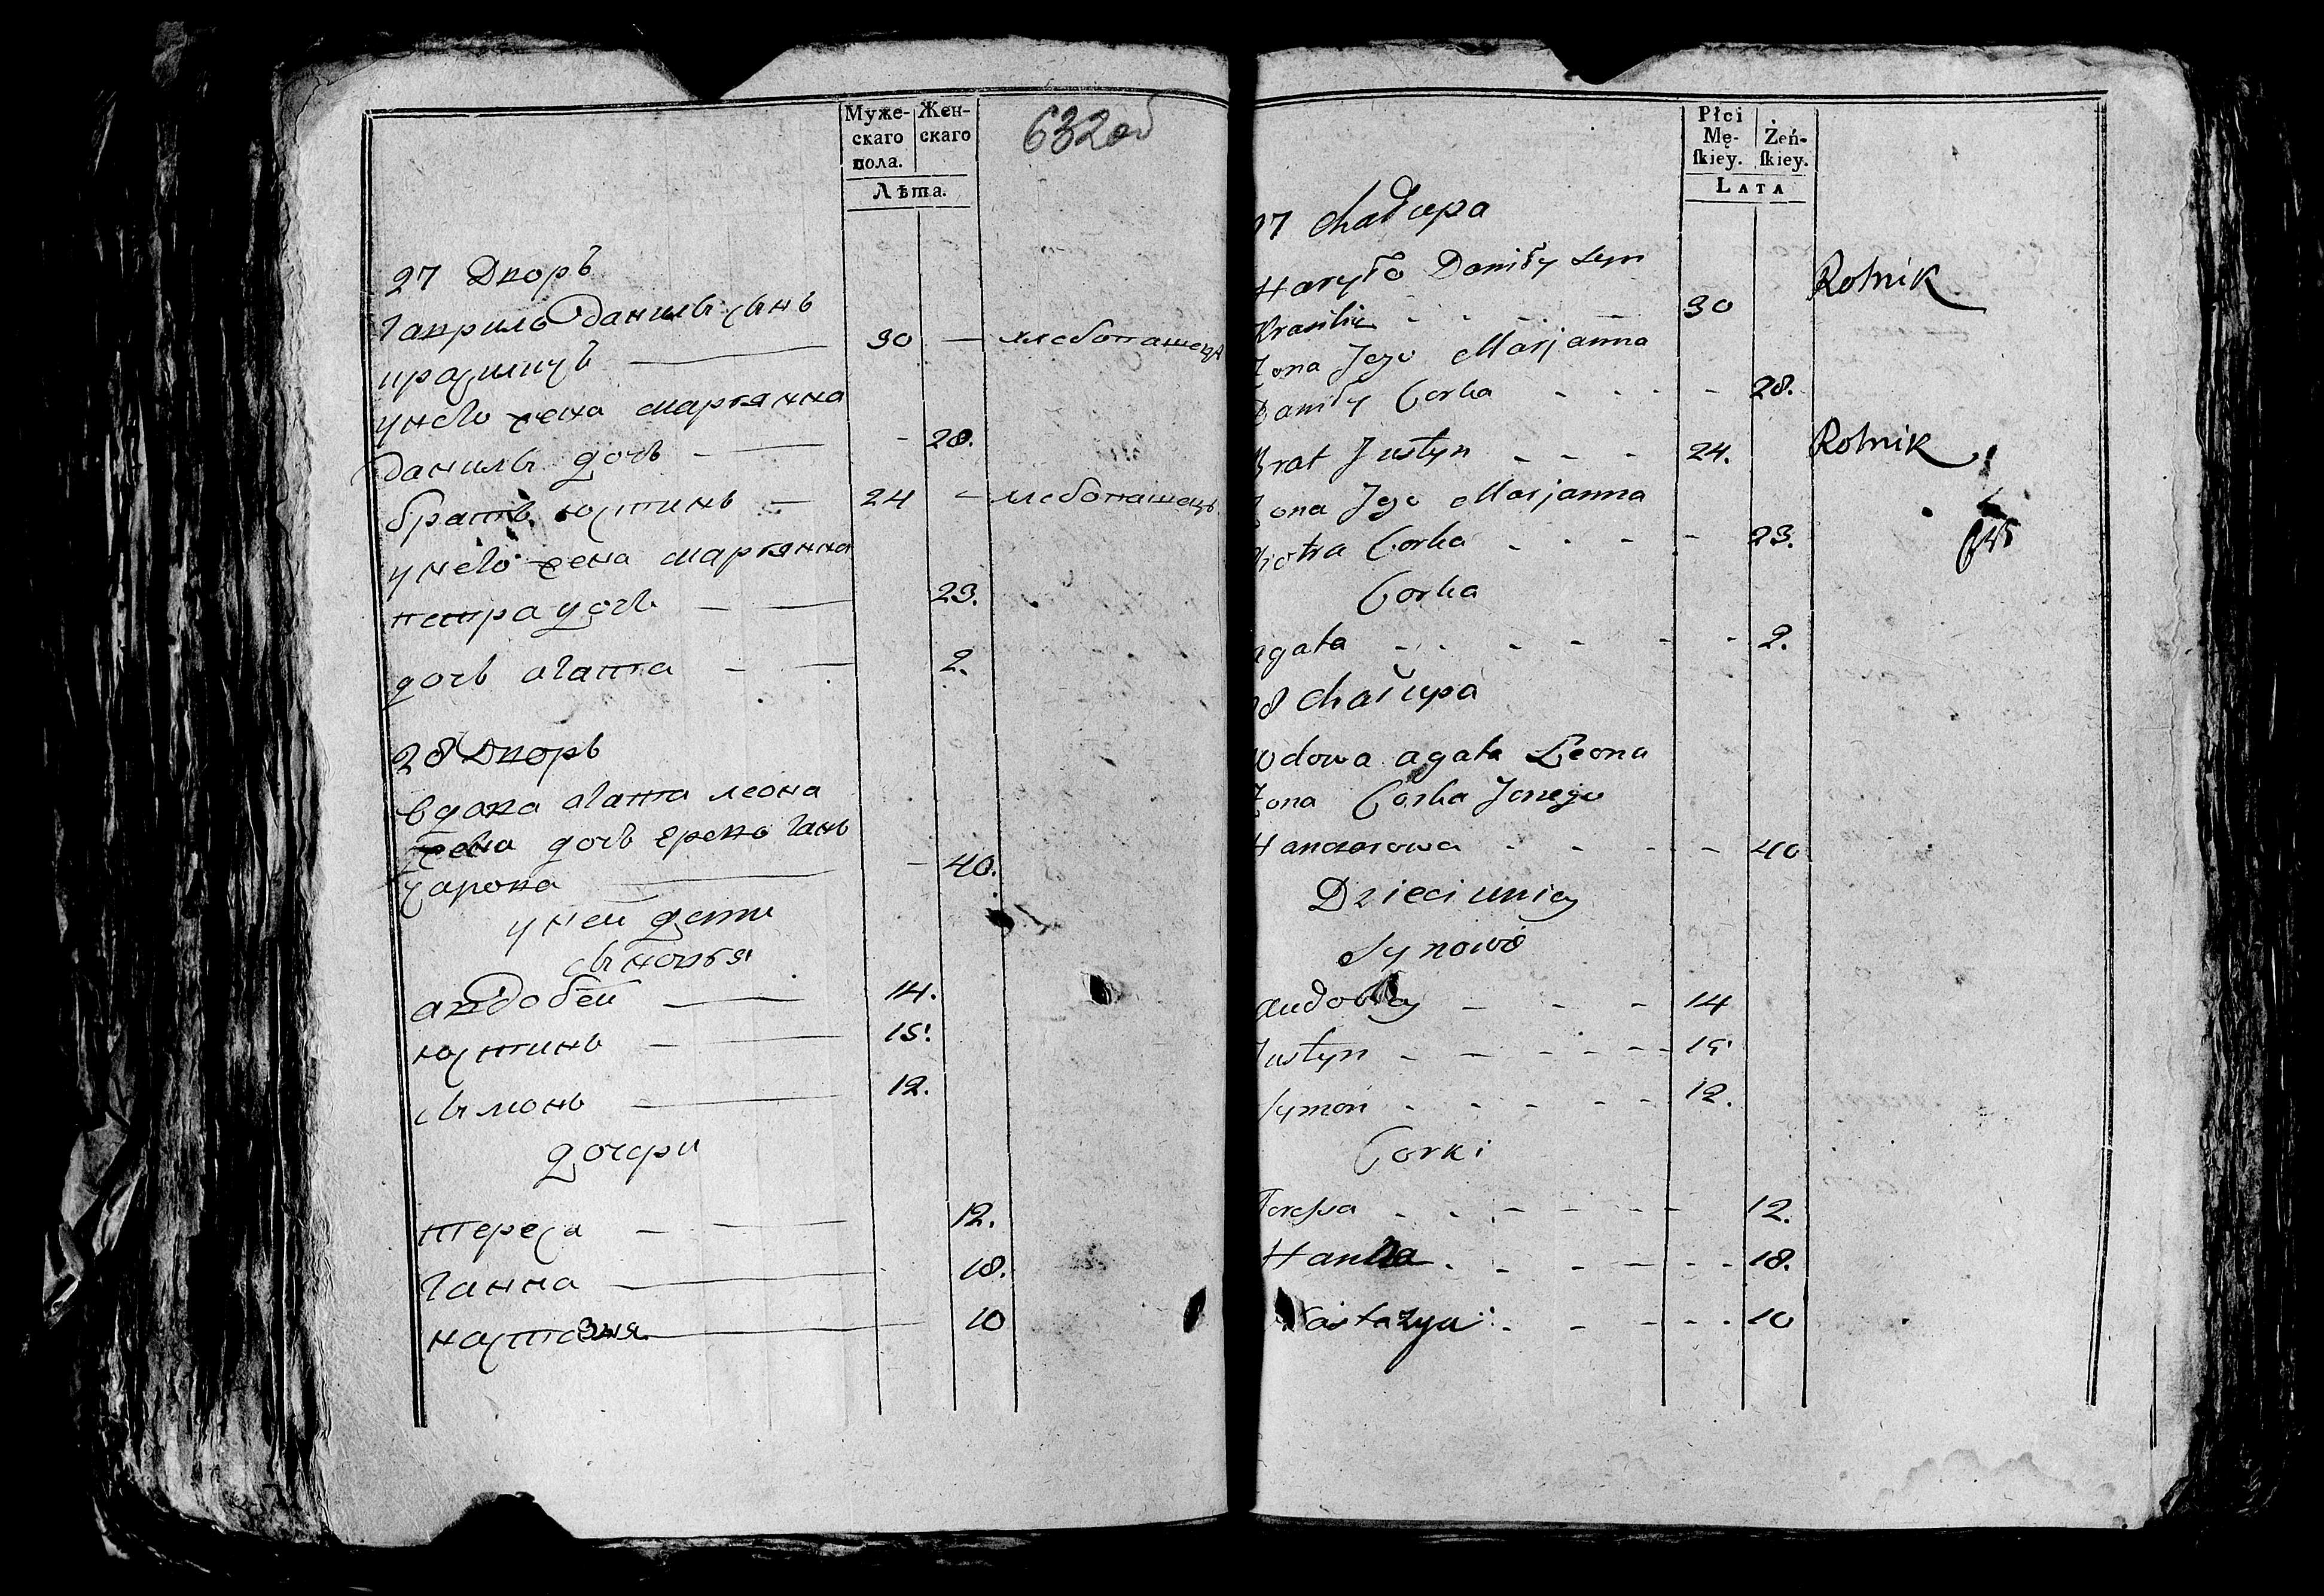 Муже-
скаго
пола.
Жен-
скаго
Лѣта.
632 об
27 Дворъ
Гаврило Данилы сынъ
красицъ — 30 — хлебопашецъ
у него жена марьянна
данилы дочь — - 28.
братъ юстинъ — 24 — хлебопашецъ
у него жена марьянна
петра дочь — — 23.
дочь агата — — 2.
28 Дворъ
вдова агата леона
жена дочь
— - 40.
у ней дети
сыновья
авдобей — 14.
юстинъ — 15.
сымонъ — 12.
дочери
тереса — — 12.
Ганна — 18.
настазия — 10
Płci
Mę-
ſkiey.
Żeń-
ſkiey.
LATA
27 Chałupa
Hawryło Daniły Syn
- - - 30 Rolnik
Żona Jego Marjanna
Daniły Corka - - - - 28.
Brat Justyn - - - 24. Rolnik
Żona Jego Marjanna
Piotra Corka - - - - 23.
Corka
agata - - - - - - 2.
28 Chałupa
Wdowa agata Leona
Żona Corka
- - - - 40
Dzieci u niey
Synowie
- - - 14
Justyn - - - - - 15
Symon - - - - - 12.
Corki
Teressa - - - - - - 12.
Hanna - - - - - - 18.
Nastazya - - - - - 10